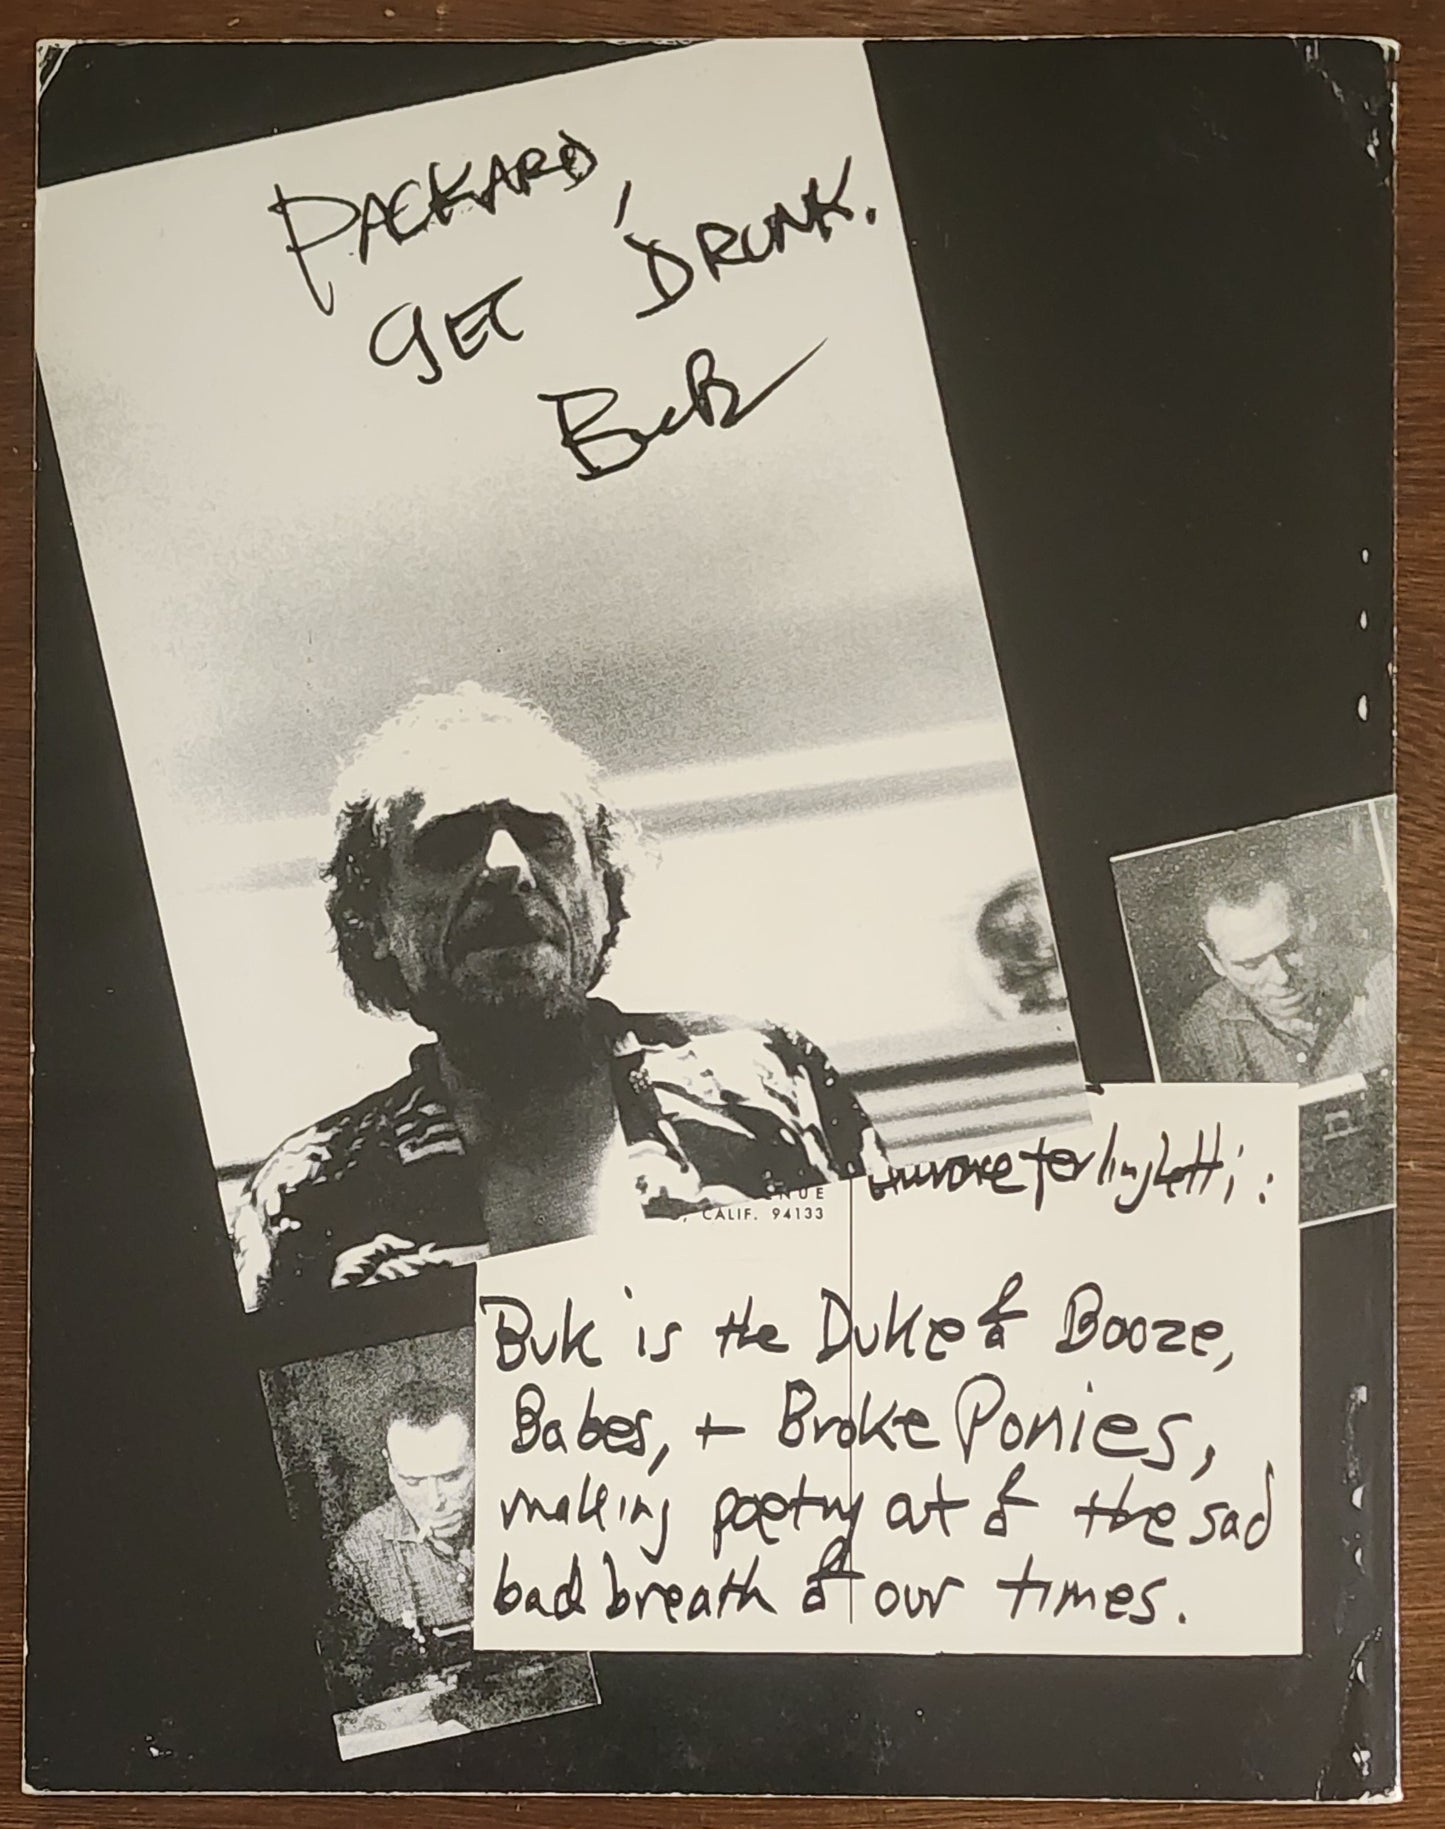 PACKARD,
GET DRUNK.
Buk
NUE
, CALIF. 94133
Ferlinghetti:
Buk is the Duke of Booze,
Babes, + Broke Ponies,
making poetry out of the sad
bad breath of our times.